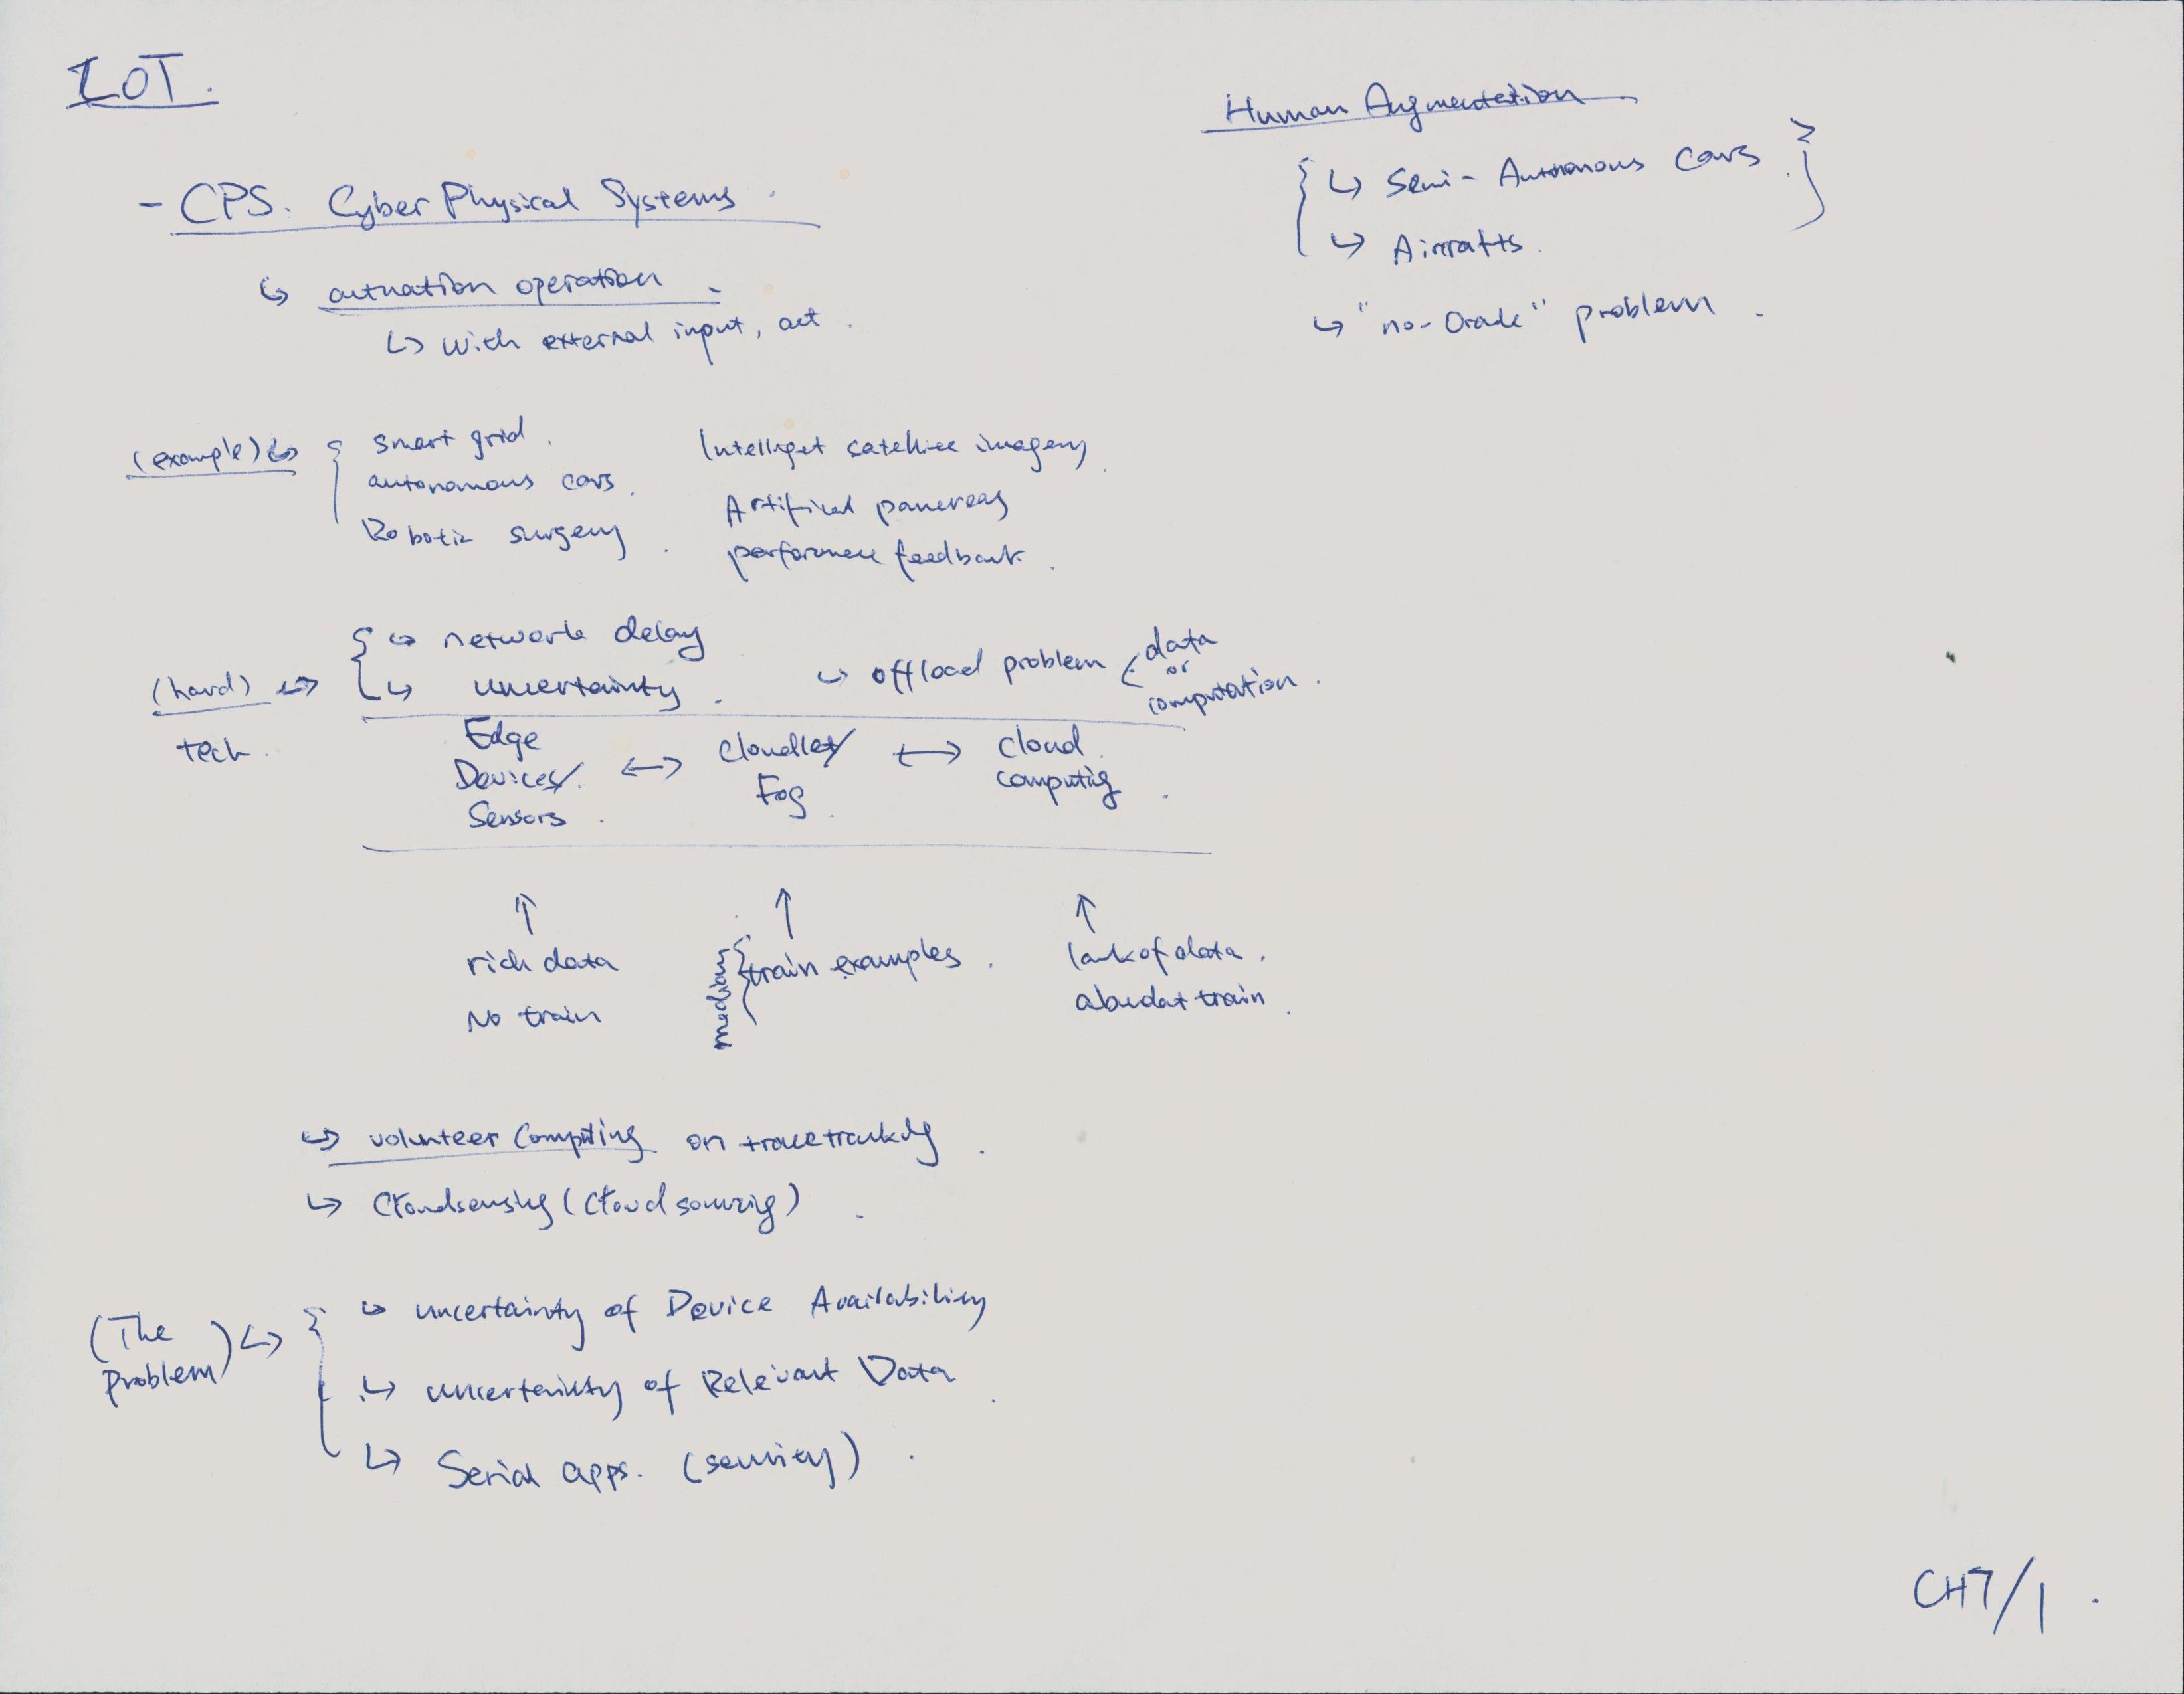 IOT.
- CPS. Cyber Physical Systems.
↳ actuation operation
↳ with external input, act.
(example) ↳ { smart grid.
autonomous cars.
Robotic surgery.
Intelliget satellite imagery.
Artifical pancreas
performence feedback.
(hard) ↳ tech.
{ ↳ network delay
↳ uncertainty.
↳ offload problem < data or computation.
Edge Devices/ Sensors. ↔ Cloudlet/ Fog. ↔ cloud. computig.
↑ ↑ ↑
rich data
No train
medium { train examples.
lack of data.
abudat train.
↳ volunteer Computing on
↳ (Cloud sourcig).
(The Problem) ↳ { ↳ uncertainty of Device Availability
↳ uncertainty of Relevant Data.
↳ Serial apps. (security).
Human Augmentation
{ ↳ Semi-Autonomous cars. }
↳ Aircrafts.
↳ "no-Oracle" problem.
CH7/1.